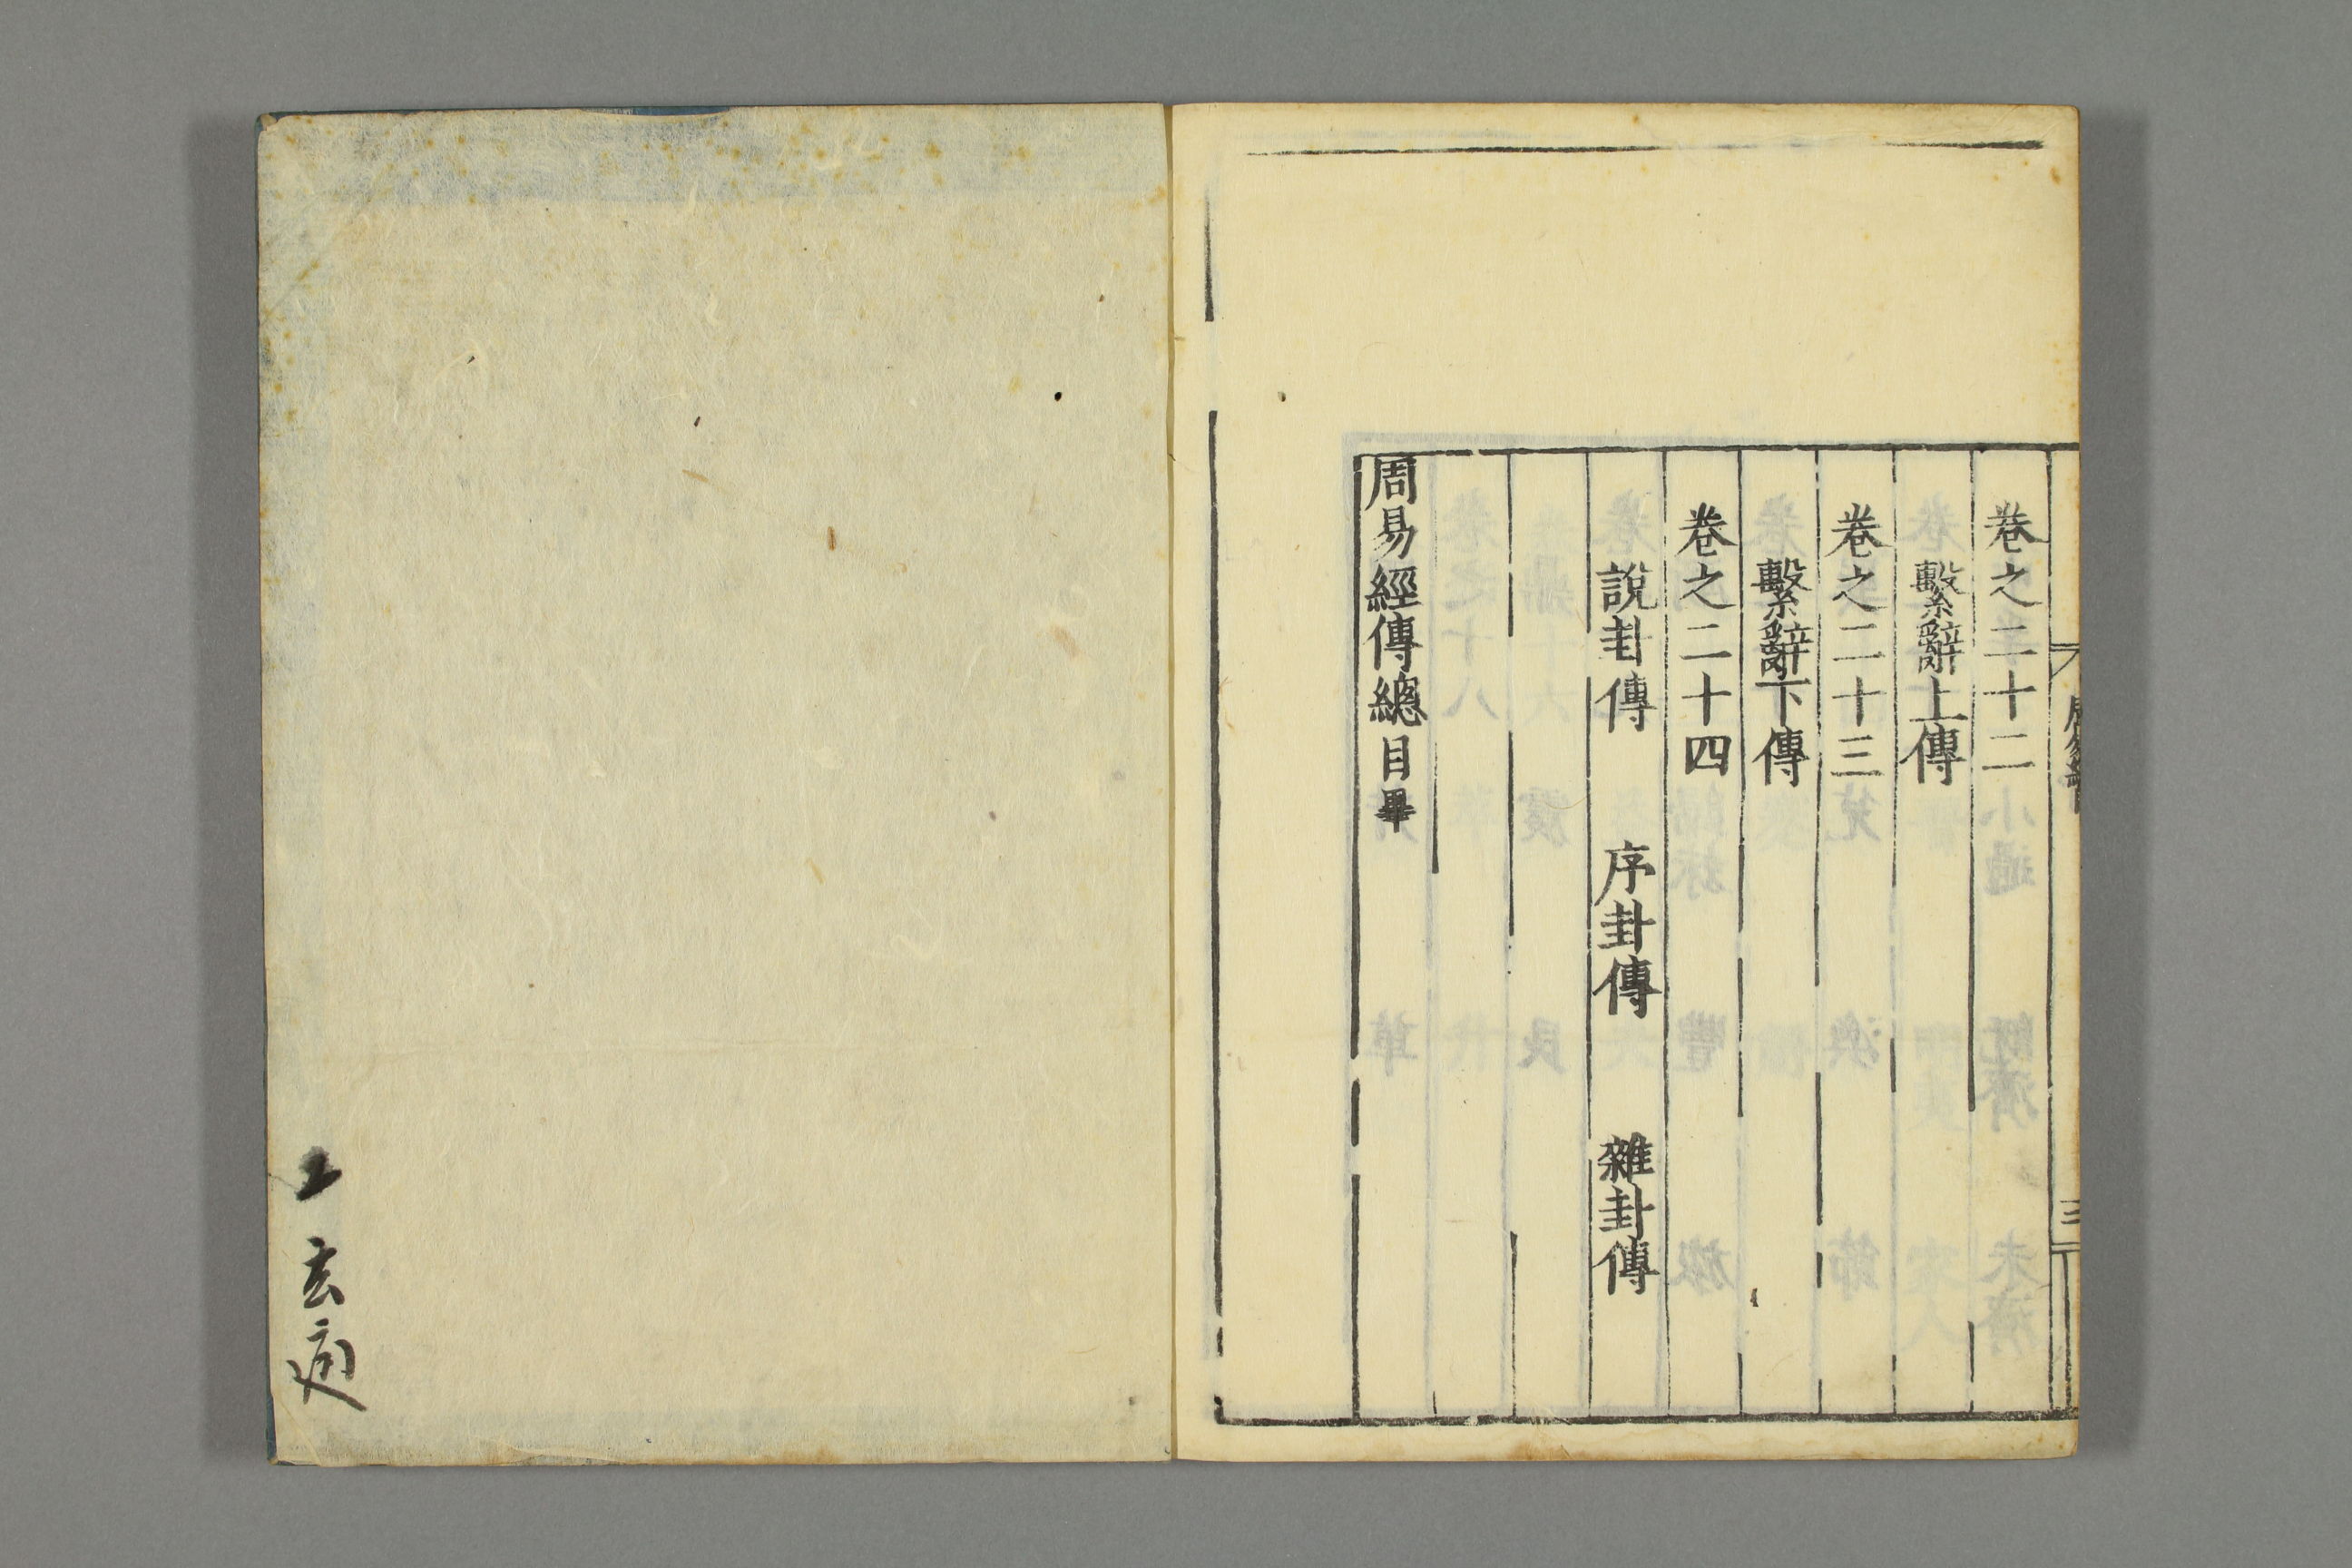 卷之二十二
繫辭上傳
卷之二十三
繫辭下傳
卷之二十四
說卦傳　序卦傳　雜卦傳
周易經傳總目畢
三